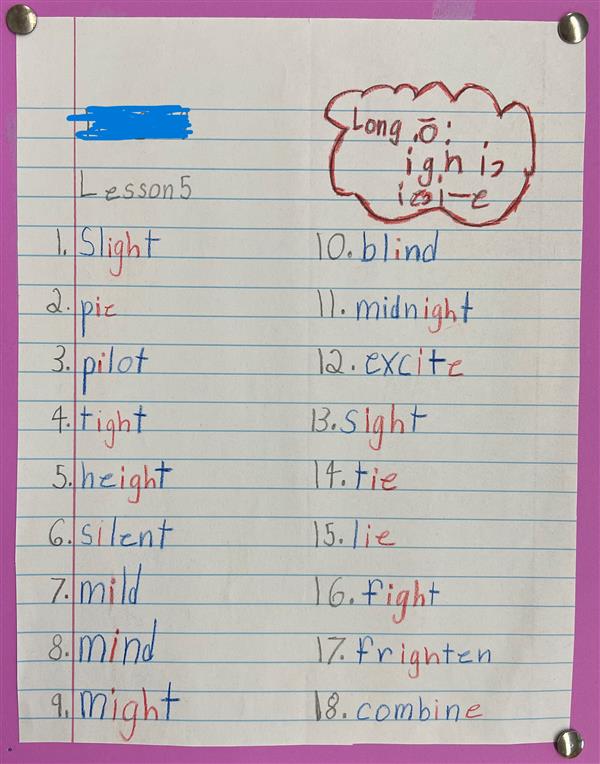 Long ō:
igh i,
ie, i-e
Lesson 5
1. Slight
2. pie
3. pilot
4. tight
5. height
6. silent
7. mild
8. mind
9. might
10. blind
11. midnight
12. excite
13. sight
14. tie
15. lie
16. fight
17. frighten
18. combine